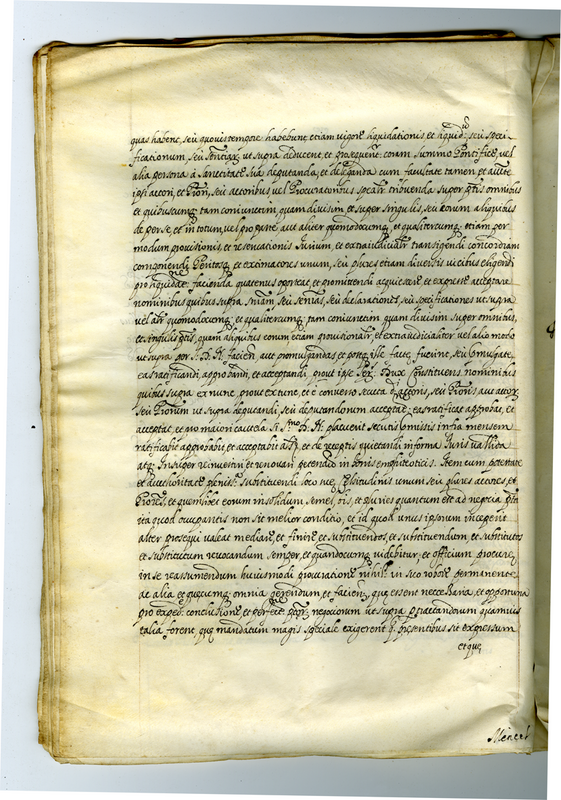 quas habent, seu quovis tempore habebunt, etiam vigore liquidationis et liquid. seu speci-
ficationum, seu sentiar. ut supra deducent, et prosequent. coram summo Pontifice, vel
alia persona à Sanctitate sua deputanda, et deleganda cum facultate tamen et
ipsi actori, et seu actoribus vel Procuratoribus tribuenda super ptis omnibus
et quibuscunq. tam coniunctim, quam divisim et super singulis, seu eorum aliquibus
de per se, et in totum, vel pro parte aut aliter quomodocunq. et qualitercunq. etiam per
modum provisionis, et reservationis Iurium, et extraiudicialr transigendi concordiam
componendi Peritosq. et extimatores unum, seu plures etiam diversis vicibus eligendi
pro liquidatne facienda quatenus oporteat, et promittendi acquiescere et expresse acceptare
nominibus quibus supra sniam, seu sentias, seu declarationes, seu specificationes ut supra
vel alr quomodocunq. et qualitercunq. tam coniunctim quam divisim super omnibus,
et singulis ptis, quam aliquibus eorum etiam provisionalr, et extraiudicialiter vel alio modo
ut supra per S. D. N. facien. aut promulgandas et postq. ille fuerint, seu
eas ratificandi, approbandi, et acceptandi, prout ipse Dux Constituens nominibus
quibus supra ex nunc, prout ex tunc, et è converso secuta
seu ut supra deputandi, seu deputandorum acceptat. eas ratificat approbat, et
acceptat, et pro maiori cautela si S.mo D. N. placuerit secutis infra mensem
ratificabit approbabit et acceptabit et de receptis quietandi in forma Iuris valida
atq. Insuper reinvestiri et renovari petendo in bonis emphiteoticis. Item cum potestate
et auctoritate substituendi loco sue unum seu plures actores, et
et quemlibet eorum in solidum semel, bis, et pluries quantum ad negocia pta
ita quod occupantis non sit melior conditio, et id quod unus ipsorum inceperit
alter prosequi valeat mediare, et finire et substituendos, et substituendum et substitutos
et substitutum revocandum semper, et quandocunq. videbitur, et officium
in se reassumendum huiusmodi procuratione nihil. in suo robore permanente
ac alia et quecunq. omnia gerendum et facien. que essent necessaria, et opportuna
pro expedit. conclusione et perfect. negociorum ut supra pertractandorum quamvis
talia forent, que mandatum magis speciale exigerent q. presentibus sit expressum
et que